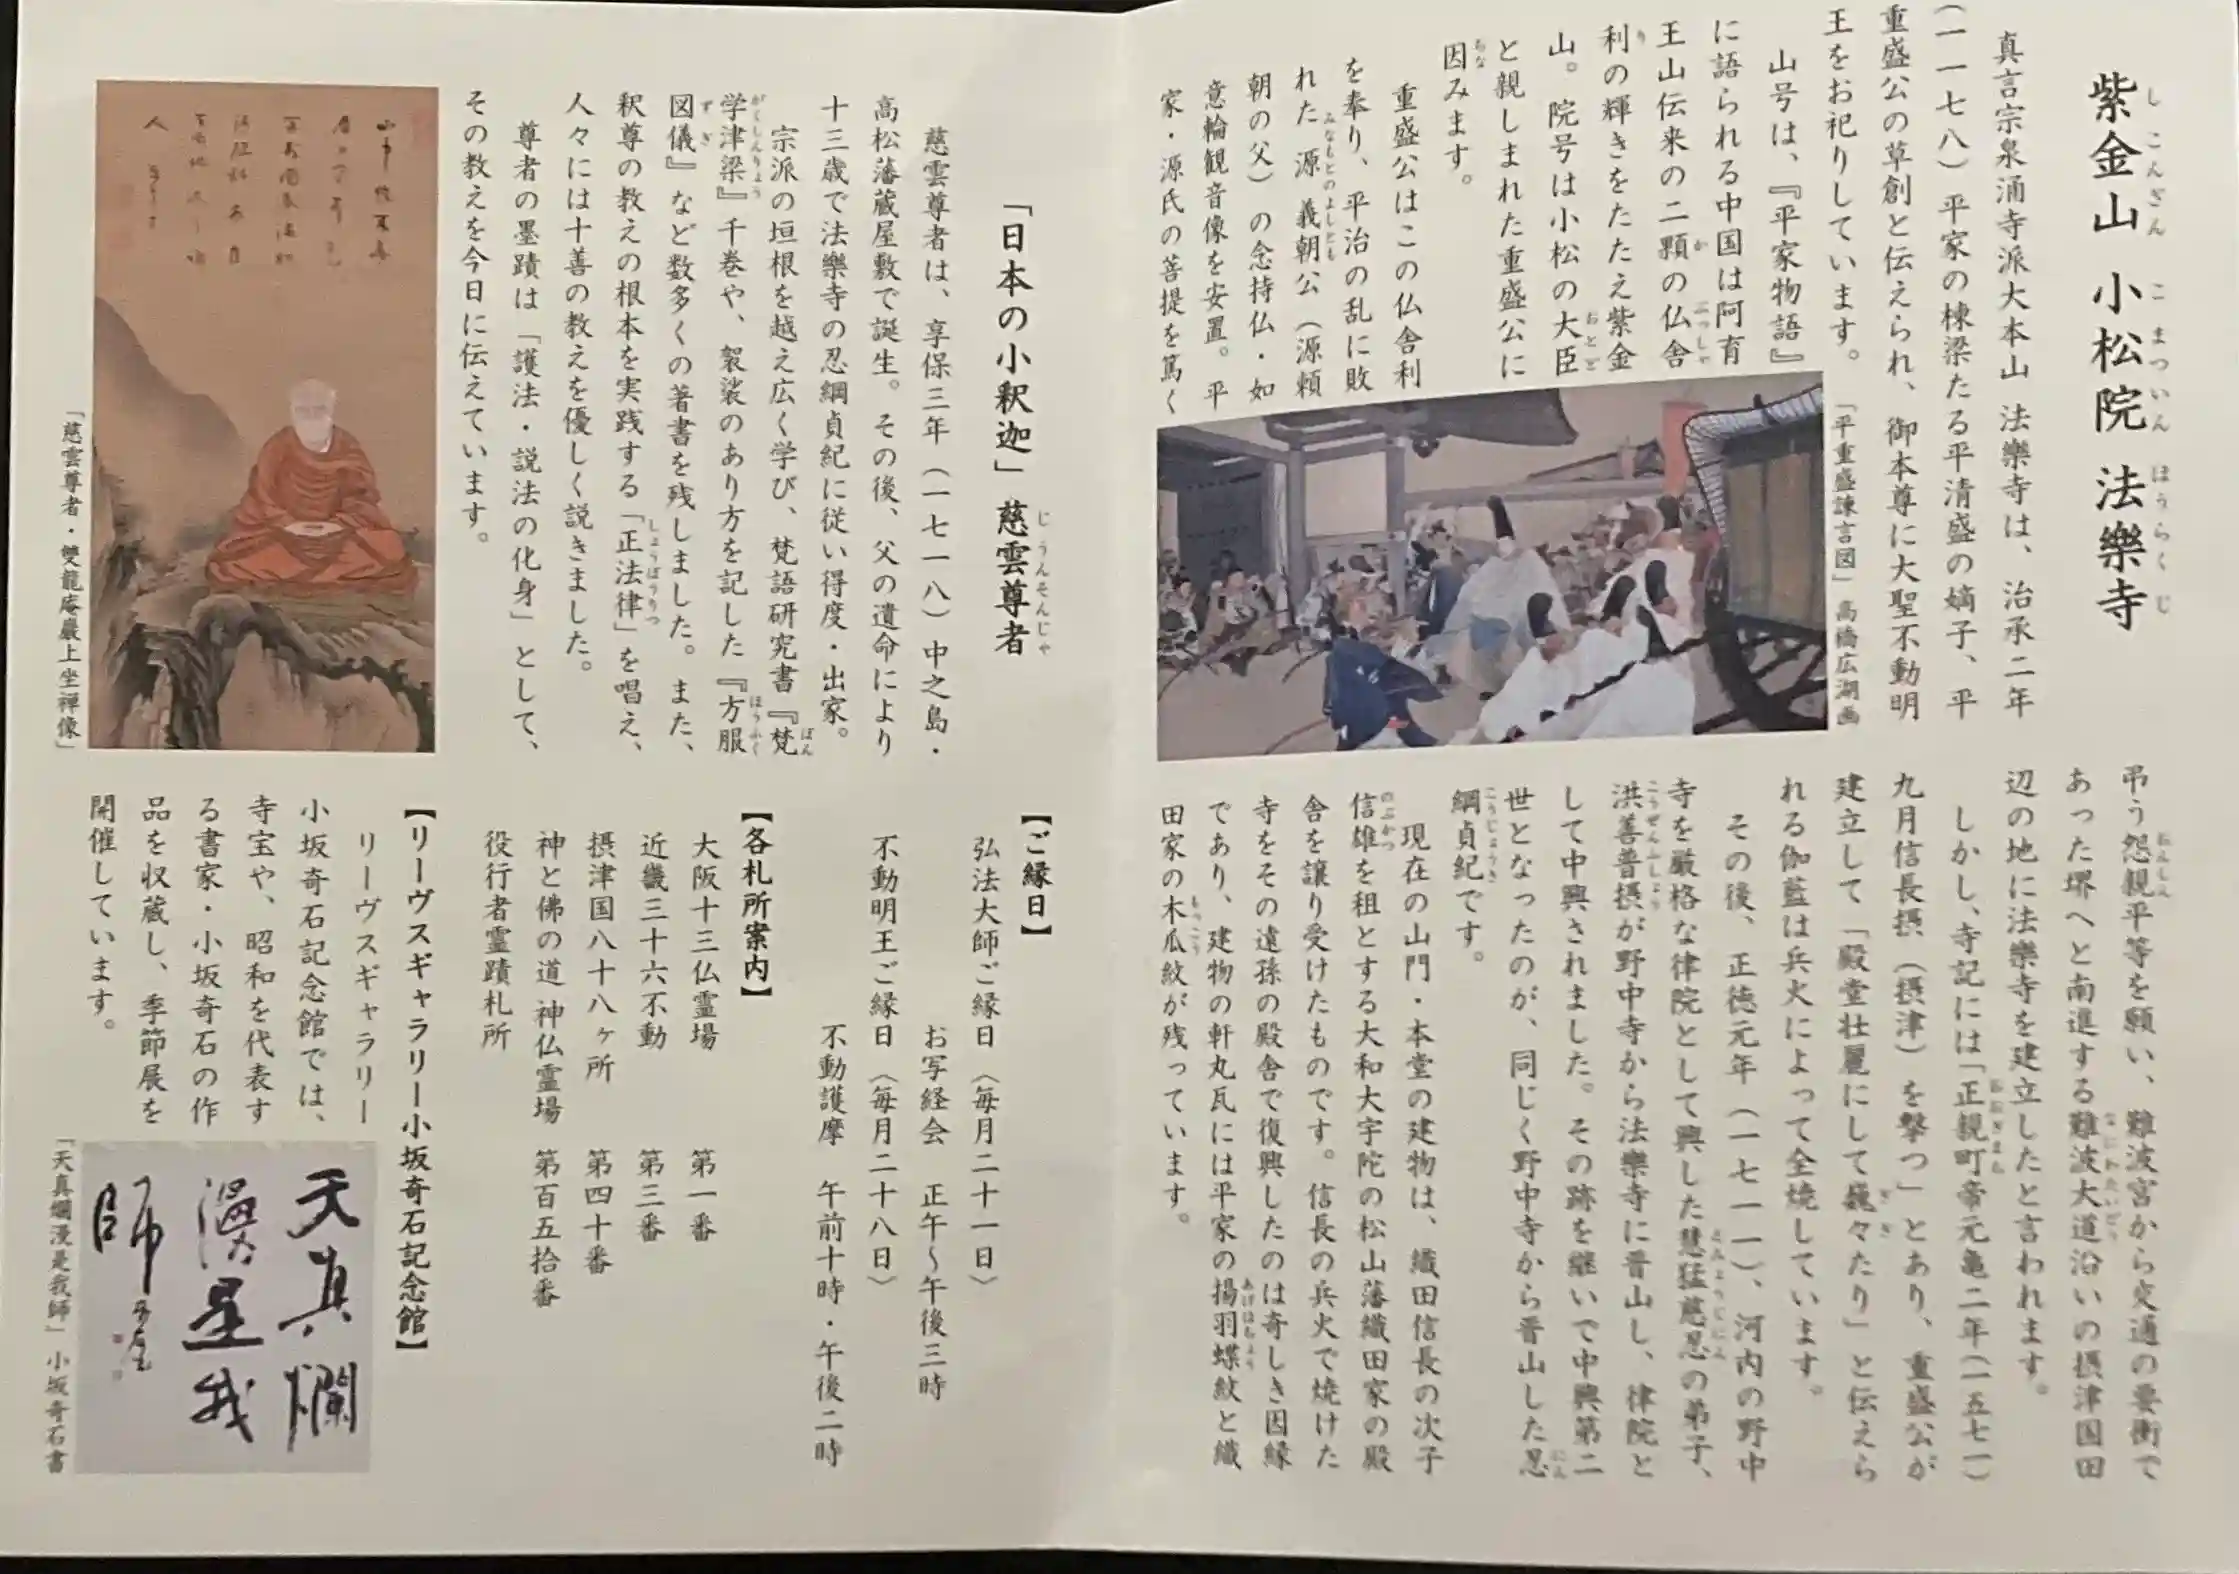 紫金山 小松院 法樂寺
しこんざん こまついん ほうらくじ
真言宗泉涌寺派大本山 法樂寺は、治承二年
(一一七八)平家の棟梁たる平清盛の嫡子、平
重盛公の草創と伝えられ、御本尊に大聖不動明
王をお祀りしています。
山号は、『平家物語』
に語られる中国は阿育
王山伝来の二顆の仏舎
利の輝きをたたえ紫金
山。院号は小松の大臣
と親しまれた重盛公に
因みます。
重盛公はこの仏舎利
を奉り、平治の乱に敗
れた源義朝公(源頼
朝の父)の念持仏・如
意輪観音像を安置。平
家・源氏の菩提を篤く
「平重盛諫言図」高橋広湖画
弔う怨親平等を願い、難波宮から交通の要衝で
あった堺へと南進する難波大道沿いの摂津国田
辺の地に法樂寺を建立したと言われます。
しかし、寺記には「正親町帝元亀二年(一五七一)
九月信長摂(摂津)を撃つ」とあり、重盛公が
建立して「殿堂壮麗にして巍々たり」と伝えら
れる伽藍は兵火によって全焼しています。
その後、正徳元年(一七一一)、河内の野中
寺を厳格な律院として興した慧猛慈忍の弟子、
洪善普摂が野中寺から法樂寺に晋山し、律院と
して中興されました。その跡を継いで中興第二
世となったのが、同じく野中寺から晋山した忍
綱貞紀です。
現在の山門・本堂の建物は、織田信長の次子
信雄を祖とする大和大宇陀の松山藩織田家の殿
舎を譲り受けたものです。信長の兵火で焼けた
寺をその遠孫の殿舎で復興したのは奇しき因縁
であり、建物の軒丸瓦には平家の揚羽蝶紋と織
田家の木瓜紋が残っています。
「日本の小釈迦」慈雲尊者
じうんそんじゃ
慈雲尊者は、享保三年(一七一八)中之島・
高松藩蔵屋敷で誕生。その後、父の遺命により
十三歳で法樂寺の忍綱貞紀に従い得度・出家。
宗派の垣根を越え広く学び、梵語研究書『梵
学津梁』千巻や、袈裟のあり方を記した『方服
図儀』など数多くの著書を残しました。また、
釈尊の教えの根本を実践する「正法律」を唱え、
人々には十善の教えを優しく説きました。
尊者の墨蹟は「護法・説法の化身」として、
その教えを今日に伝えています。
「慈雲尊者・雙龍庵巌上坐禅像」
【ご縁日】
弘法大師ご縁日(毎月二十一日)
お写経会 正午〜午後三時
不動明王ご縁日(毎月二十八日)
不動護摩 午前十時・午後二時
【各札所案内】
大阪十三仏霊場 第一番
近畿三十六不動 第三番
摂津国八十八ヶ所 第四十番
神と佛の道 神仏霊場 第百五拾番
役行者霊蹟札所
【リーヴスギャラリー小坂奇石記念館】
リーヴスギャラリー
小坂奇石記念館では、
寺宝や、昭和を代表す
る書家・小坂奇石の作
品を収蔵し、季節展を
開催しています。
天真爛
漫是我
師
「天真爛漫是我師」小坂奇石書